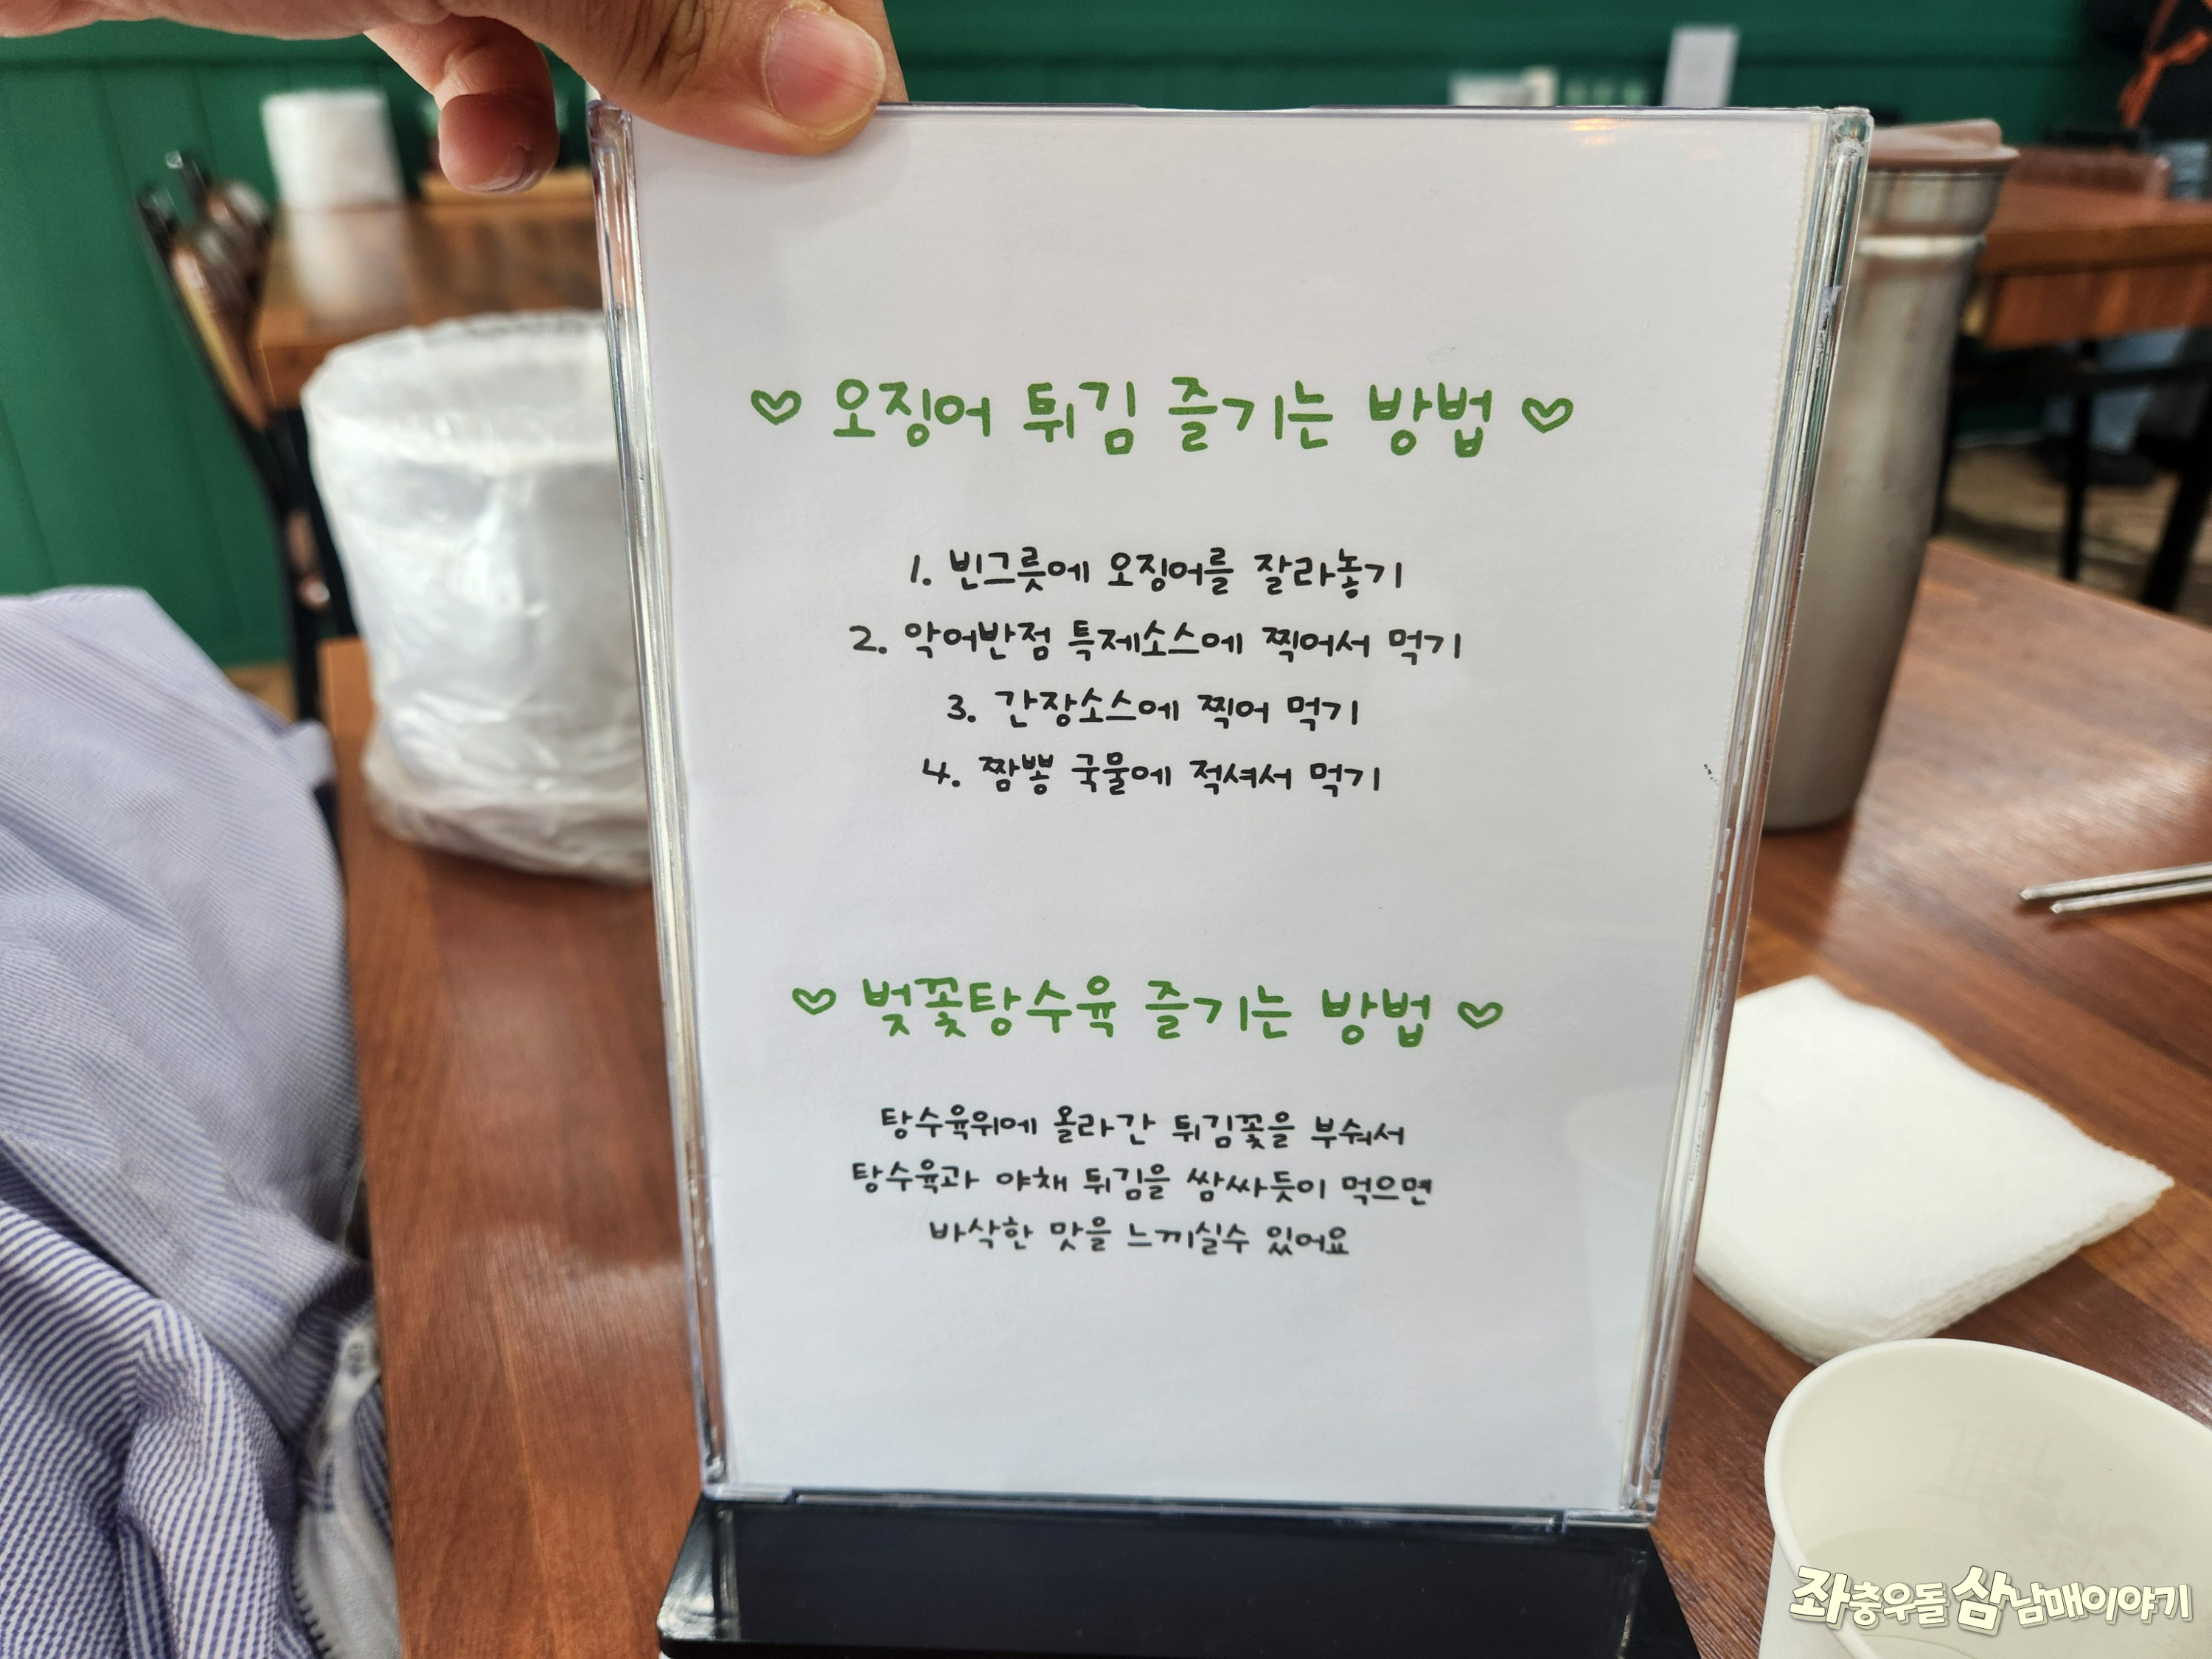 ♡ 오징어 튀김 즐기는 방법 ♡
1. 빈그릇에 오징어를 잘라놓기
2. 악어반점 특제소스에 찍어서 먹기
3. 간장소스에 찍어 먹기
4. 짬뽕 국물에 적셔서 먹기
♡ 벚꽃탕수육 즐기는 방법 ♡
탕수육위에 올라간 튀김꽃을 부숴서
탕수육과 야채 튀김을 쌈싸듯이 먹으면
바삭한 맛을 느끼실수 있어요
좌충우돌 삼남매이야기